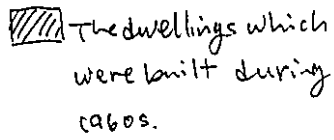 The dwellings which
were built during
1960s.